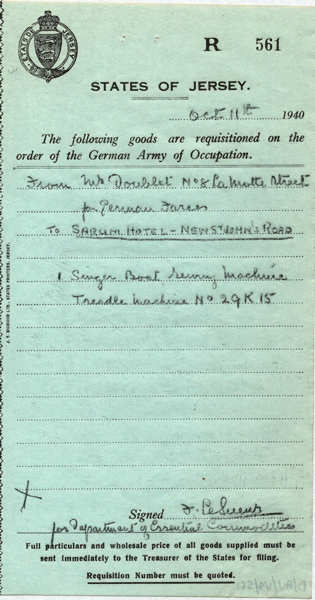 STATES OF JERSEY
R 561
STATES OF JERSEY.
Oct 11th 1940
The following goods are requisitioned on the
order of the German Army of Occupation.
From Mr Doublet No 8 La Motte Street
for German Forces
To SARUM HOTEL - NEW ST JOHN'S ROAD
1 Singer Boat Sewing Machine
Treadle Machine No 29K15
X
Signed J. Le Sueur
for Department of Essential Commodities
Full particulars and wholesale price of all goods supplied must be
sent immediately to the Treasurer of the States for filing.
Requisition Number must be quoted.